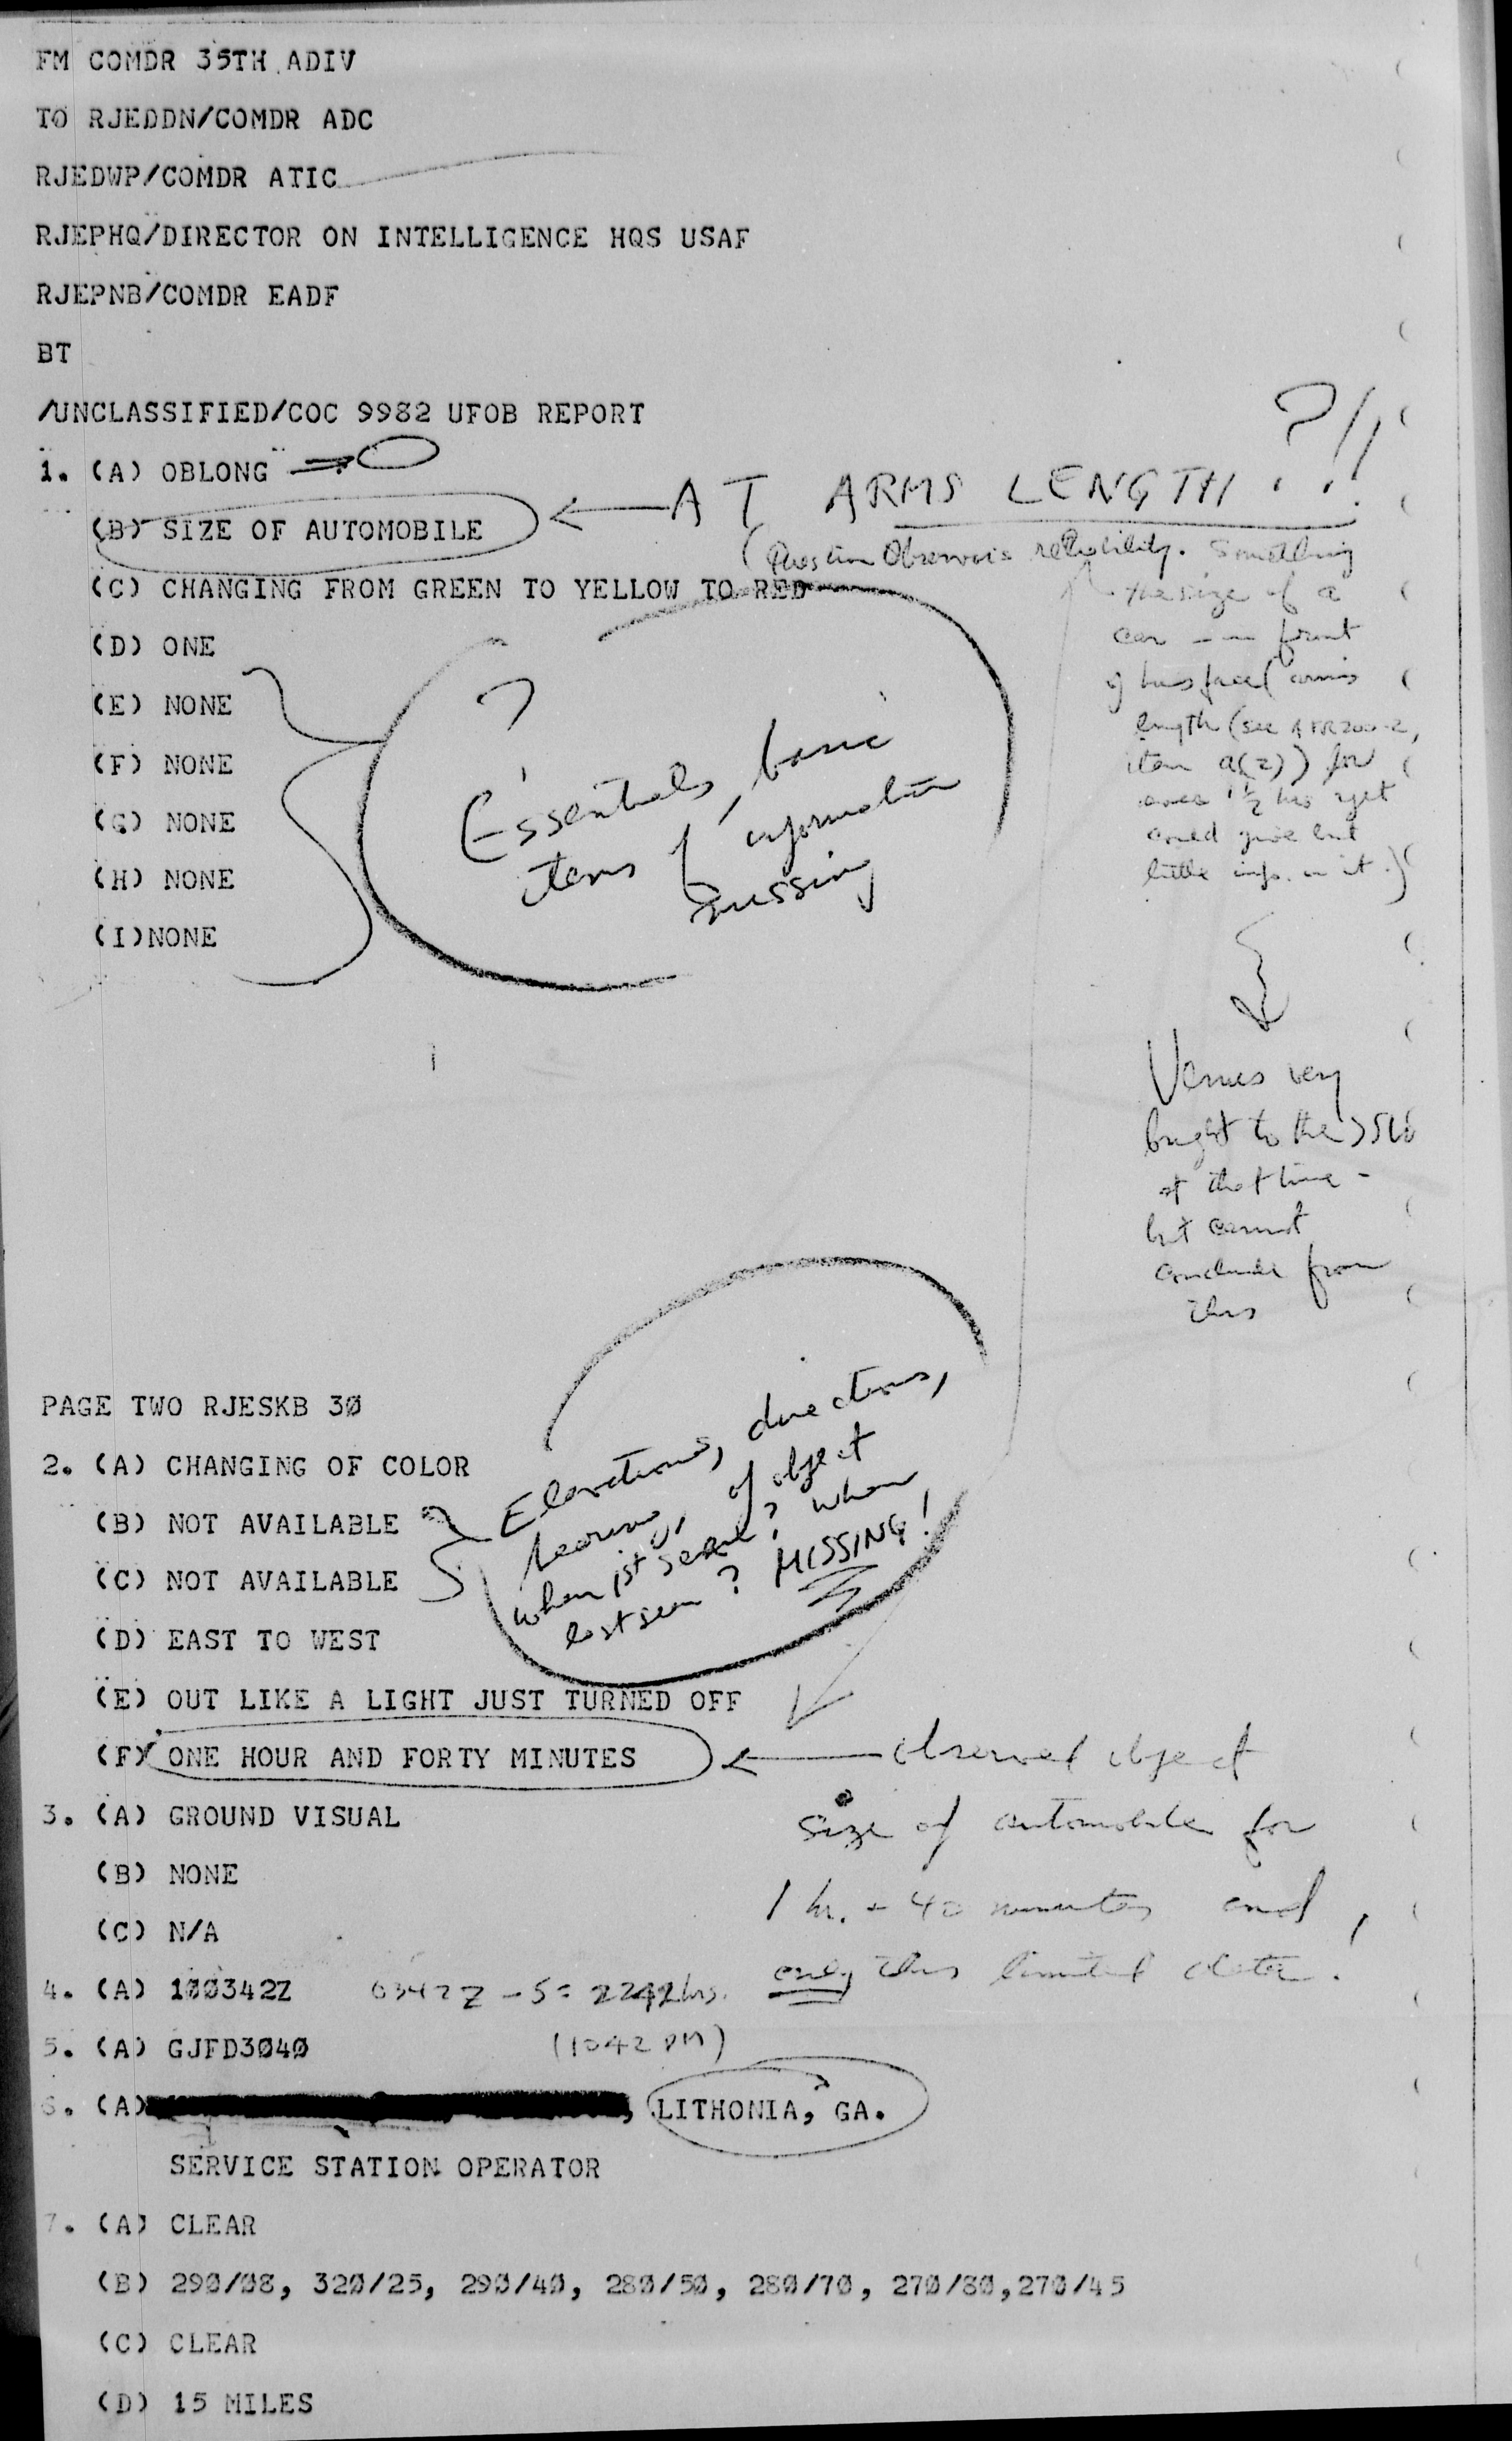 FM COMDR 35TH ADIV
TO RJEDDN/COMDR ADC
RJEDWP/COMDR ATIC
RJEPHQ/DIRECTOR ON INTELLIGENCE HQS USAF
RJEPNB/COMDR EADF
BT
/UNCLASSIFIED/COC 9982 UFOB REPORT
?!!
1. (A) OBLONG
(B) SIZE OF AUTOMOBILE
AT ARMS LENGTH . . !
(Question Observer's reliability. Something
the size of a
car in front
of his face (arms
length (see AFR200-2,
item a(2)) for
over 1 1/2 hrs yet
could give but
little info. on it.)
(C) CHANGING FROM GREEN TO YELLOW TO RED
(D) ONE
(E) NONE
(F) NONE
(G) NONE
(H) NONE
(I)NONE
?
Essentials, basic
items of information
missing
Venus very
bright to the SW
at that time -
but cannot
conclude from
this
PAGE TWO RJESKB 3Ø
2. (A) CHANGING OF COLOR
(B) NOT AVAILABLE
(C) NOT AVAILABLE
Elevations, directions,
bearing, of object
when 1st seen? when
last seen? MISSING!
(D) EAST TO WEST
(E) OUT LIKE A LIGHT JUST TURNED OFF
(F) ONE HOUR AND FORTY MINUTES
observed object
size of automobile for
1 hr. + 40 minutes and
only this limited data!
3. (A) GROUND VISUAL
(B) NONE
(C) N/A
4. (A) 1ØØ342Z 0342Z - 5 = 2242 hrs.
(1042 PM)
5. (A) GJFD3Ø4Ø
6. (A) , LITHONIA, GA.
SERVICE STATION OPERATOR
7. (A) CLEAR
(B) 29Ø/Ø8, 32Ø/25, 29Ø/4Ø, 28Ø/5Ø, 28Ø/7Ø, 27Ø/8Ø,27Ø/45
(C) CLEAR
(D) 15 MILES